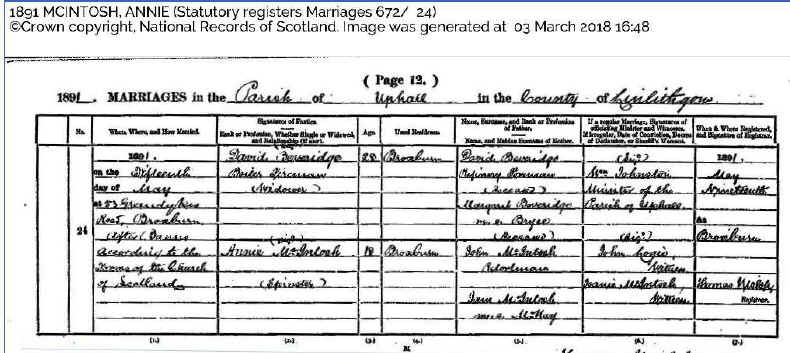 1891 MCINTOSH, ANNIE (Statutory registers Marriages 672/ 24)
©Crown copyright, National Records of Scotland. Image was generated at 03 March 2018 16:48
( Page 12. )
1891. MARRIAGES in the Parish of Uphall in the County of Linlithgow
No.
When, Where, and How Married.
Signatures of Parties.
Rank or Profession, Whether Single or Widowed, and Relationship (if any).
Age.
Usual Residence.
Name, Surname, and Rank or Profession of Father.
Name, and Maiden Surname of Mother.
If a regular Marriage, Signatures of officiating Minister and Witnesses.
If irregular, Date of Conviction, Decree of Declaration, or Sheriff's Warrant.
When & Where Registered, and Signature of Registrar.
24
1891.
on the Fifteenth
day of May
Broxburn
After Banns
According to the
Forms of the Church
of Scotland
David Beveridge
Fireman
(Widower)
Annie McIntosh
(Spinster)
28
18
Broxburn
Broxburn
David Beveridge
(Deceased)
Margaret Beveridge
m.s. Bryce
(Deceased)
John McIntosh
McIntosh
m.s. McKay
(Sig.)
Wm Johnston
Minister of the
Parish of Uphall
(Sig.)
John
Witness
McIntosh,
Witness
1891.
May
At
Broxburn
Thomas
Registrar.
(1.)
(2.)
(3.)
(4.)
(5.)
(6.)
(7.)